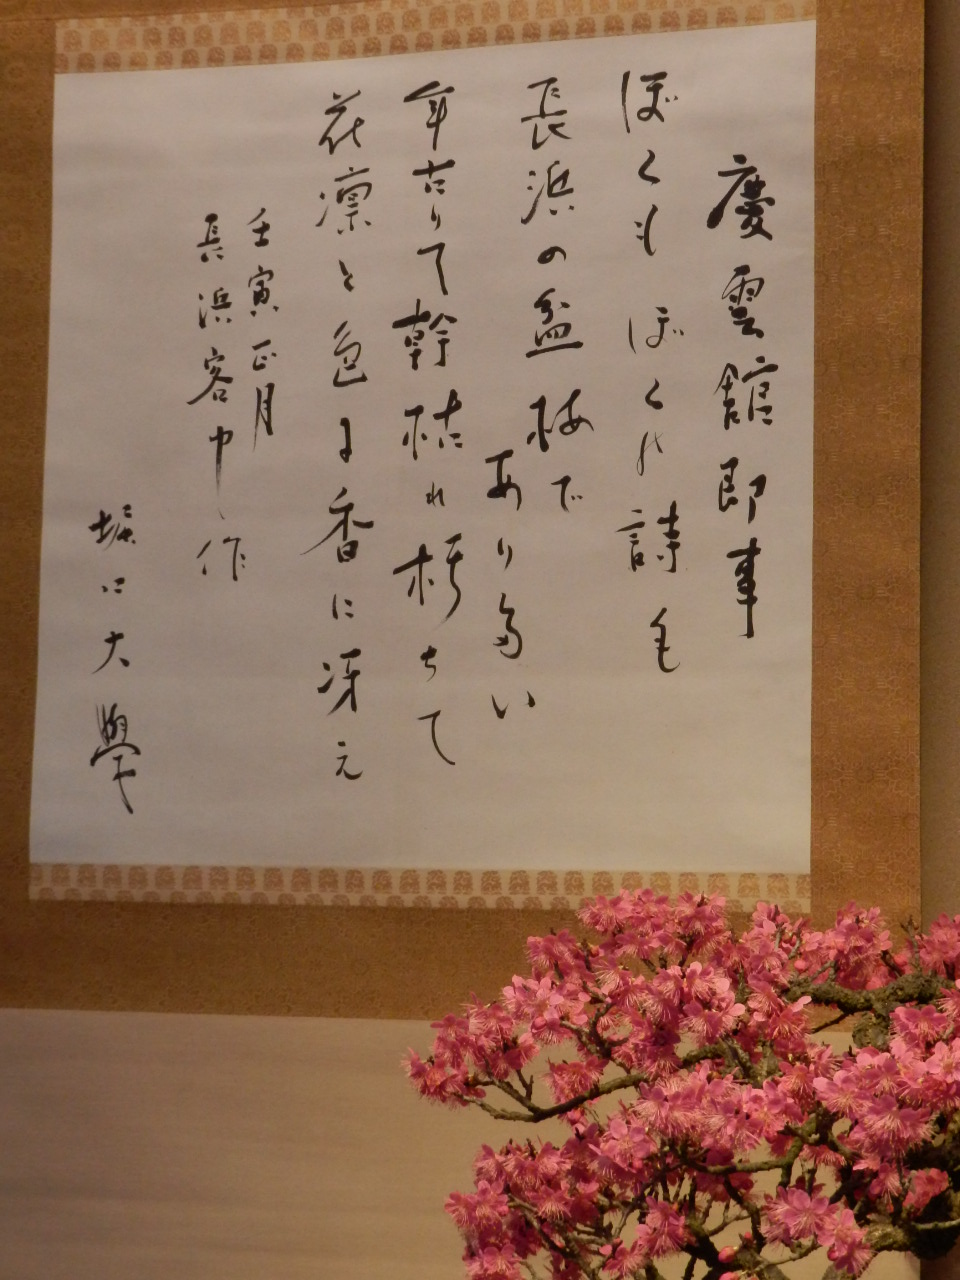 慶雲館即事
ぼくもぼくの詩も
長浜の盆梅で
ありたい
年古りて幹枯れ朽ちて
花凛と色よ香に冴え
壬寅正月
長浜客中作
堀口大學